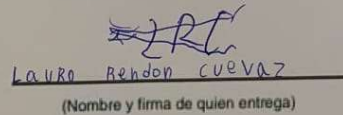 Lauro Rendon cuevaz
(Nombre y firma de quien entrega)